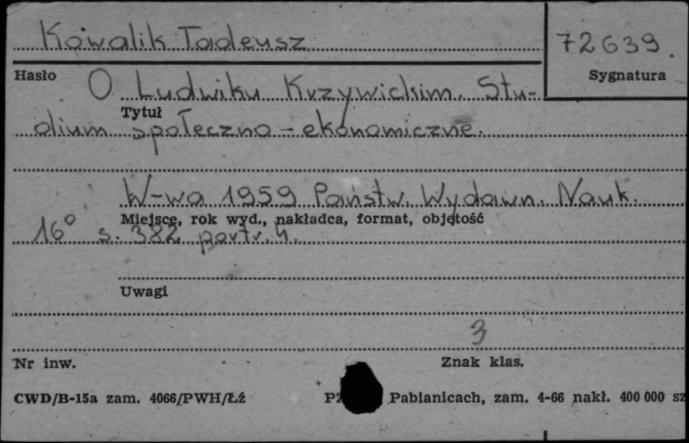 Kowalik Tadeusz
72639
Hasło
Sygnatura
O Ludwiku Krzywickim. Stu-
Tytuł
dium społeczno-ekonomiczne.
W-wa 1959 Państw. Wydawn. Nauk.
Miejsce, rok wyd., nakładca, format, objętość
16° s. 382 portr.
Uwagi
3
Nr inw.
Znak klas.
CWD/B-15a zam. 4066/PWH/Łź
Pabianicach, zam. 4-66 nakł. 400 000 sz